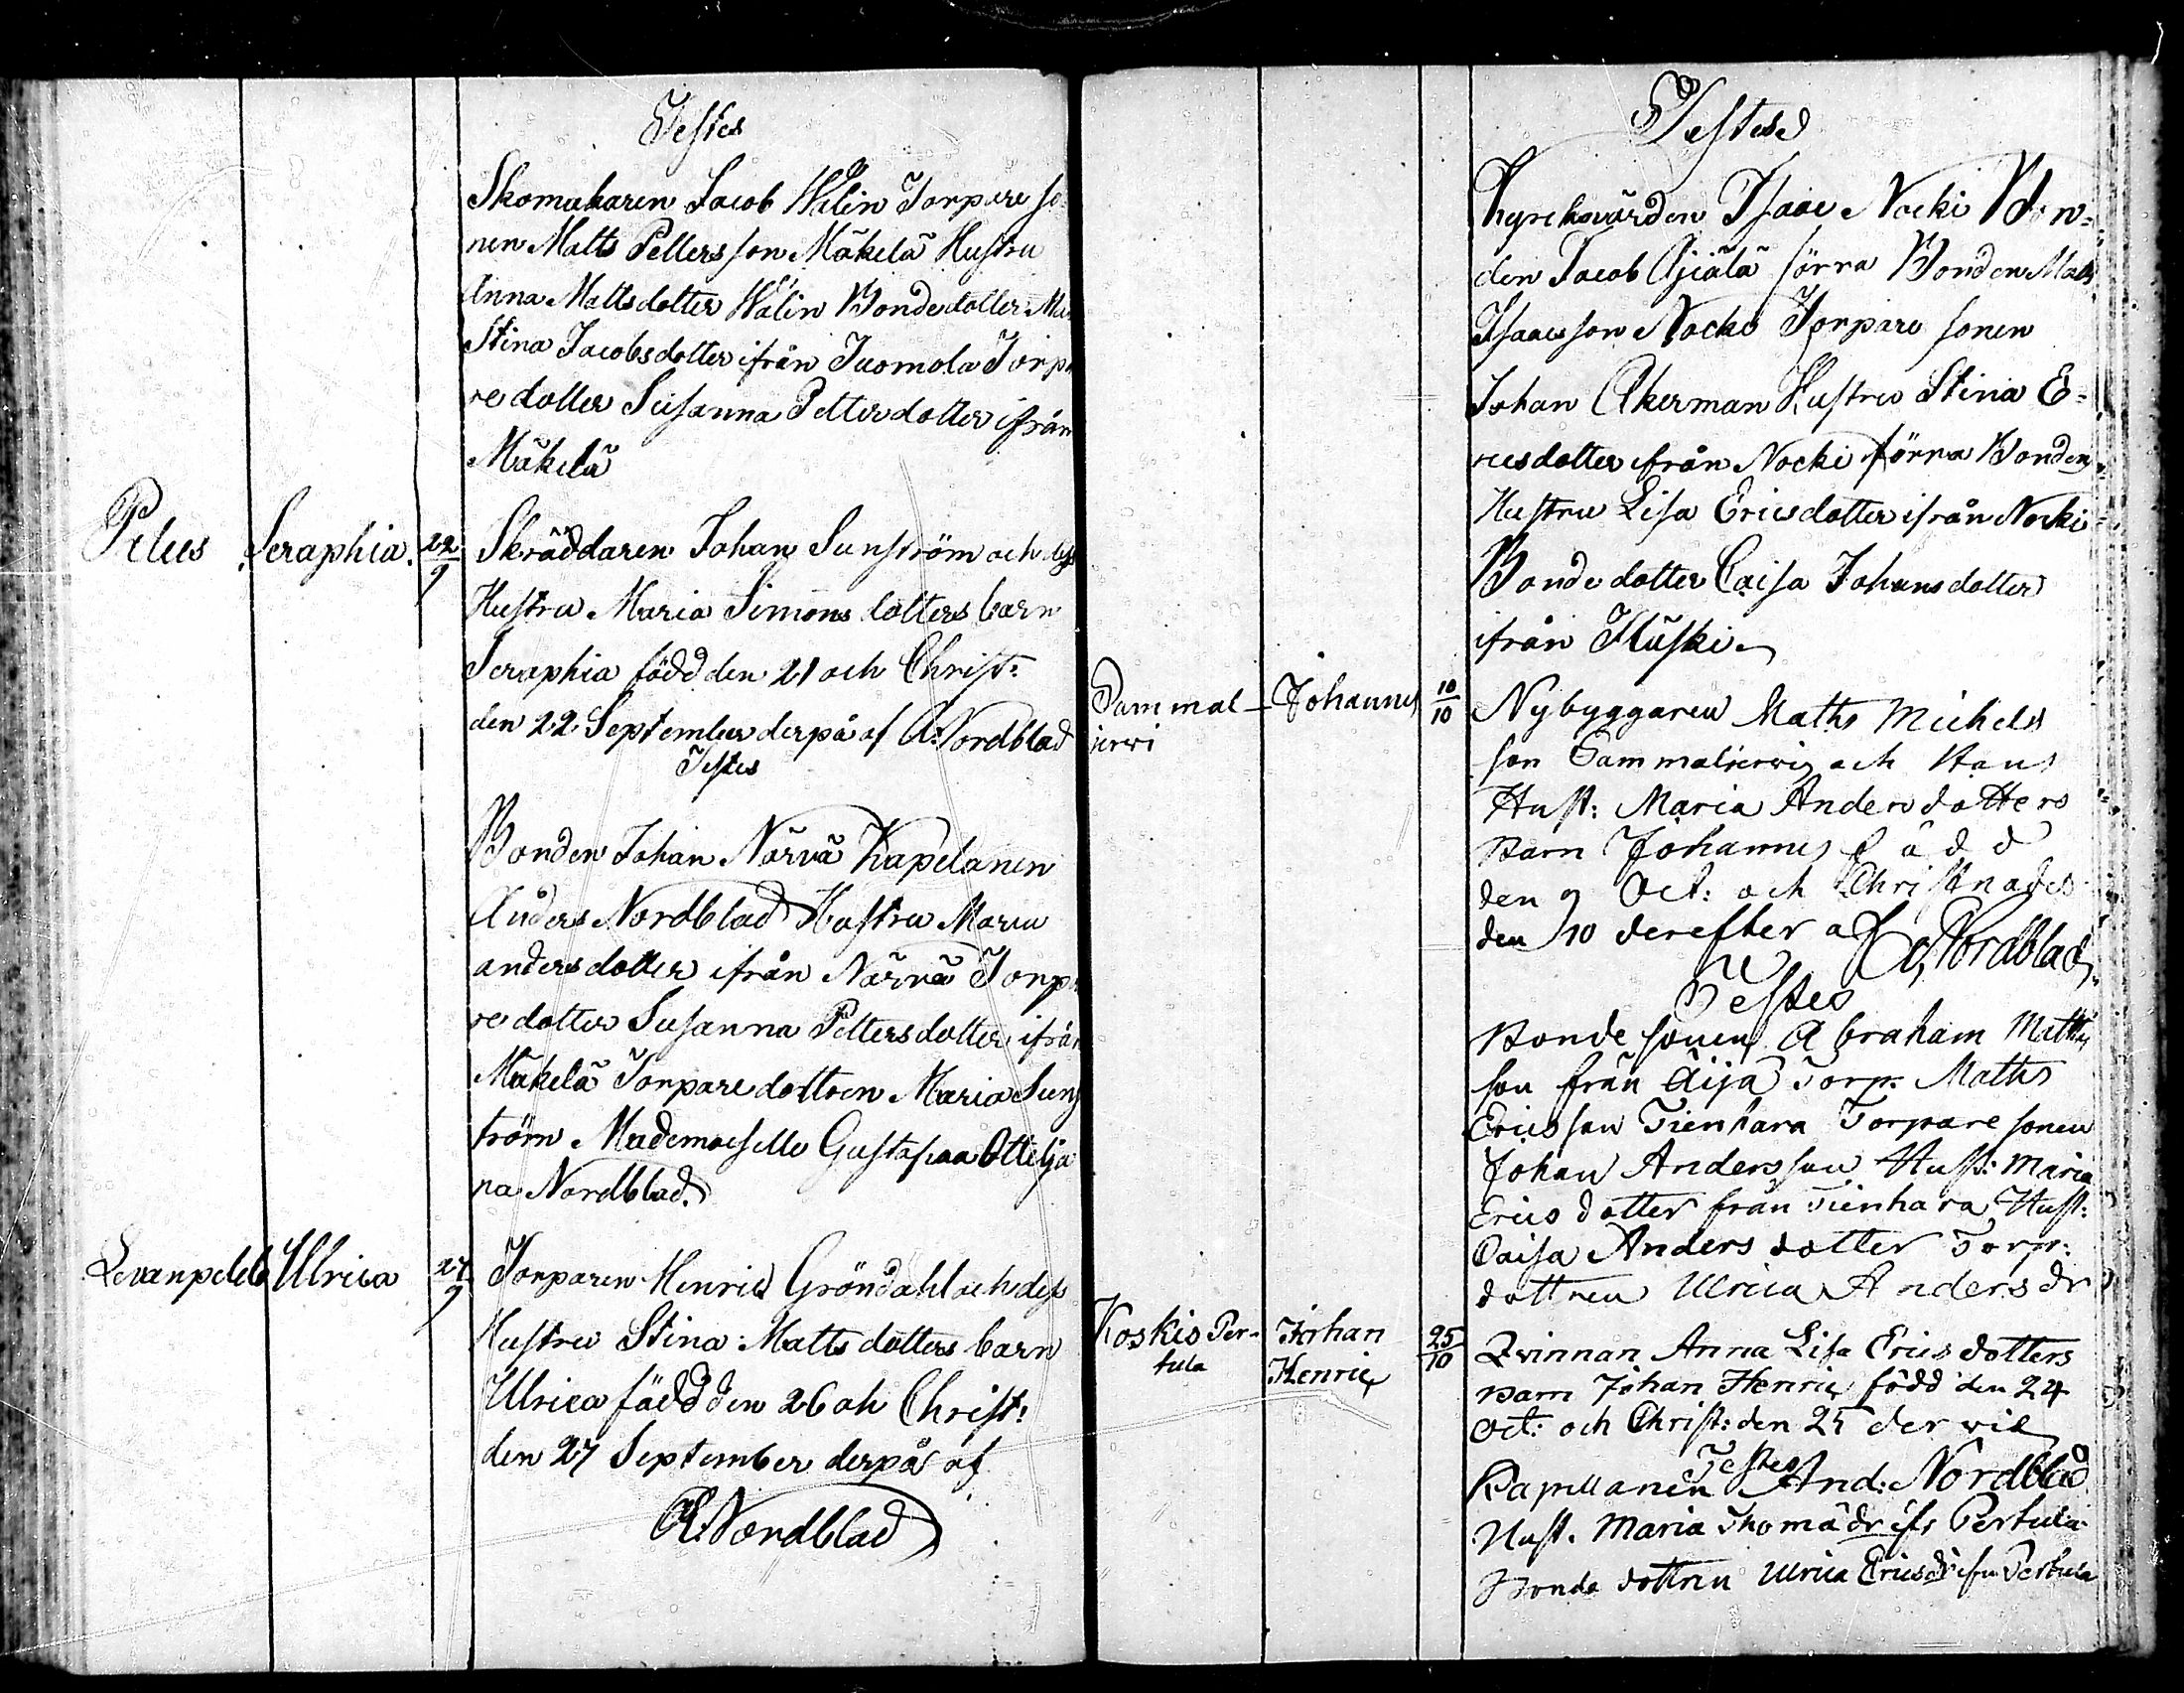 Testes
Skomakaren Jacob Walin Torpare so¬
nen Matts Pettersson Mäkelä Hustru
Anna Mattsdotter Walin Bondedotter
Stina Jacobsdotter ifrån Tuomola Torpa
re dotter Susanna Petter dotter ifrån
Mäkelä
Pelus Seraphia. 22/9 Skräddaren Johan Sunström och
Hustru Maria Simons dotters barn
Seraphia född den 21 och Christ:
den 22 September derpå af A. Nordblad
Testes
Bonden Johan Närvä Kapelanen
Anders Nordblad Hustru Maria
anders dotter ifrån Närvä Torpa
re dotter Susanna Petters dotter ifrån
Mäkelä Torpare dottren Maria Suns
tröm Mademoiselle Gustafvaa Ottilja
na Nordblad.
Levanpelto Ulrica 27/9 Torparen Henric Gröndahl och dess
Hustru Stina Matts dotters barn
Ulrica född den 26 oh Christ:
den 27 September derpå af
A. Nordblad
Testes
Kyrckovärden Isaac Nocki Bon=
den Jacob Äjälä förra Bonden Matts
Isaacsson Nocki Torpare sonen
Johan Åkerman Hustru Stina E=
ricsdotter ifrån Nocki förra Bonden
Hustru Lisa Ericsdotter ifrån Nocki
Bonde dotter Caisa Johans dotter
ifrån
Sammal- Johannes 10/10 Nybyggaren Maths Michels
jerwi son Sammaljerwi och Hans
Hust: Maria Anders dotters
Barn Johannes född
den 9 Oct: och Christnades
den 10 derefter af A, Nordblad
Testes
Bonde sonen Abraham Matths
son från Äijä Torp: Maths
Ericsson Tienhara Torpare sonen
Johan Andersson Hust: Maria
Erics dotter från Tienhara Hust:
Caisa Anders dotter Torp:
dottren Ulrica Anders dr
Koskis Per- Johan 25/10 Qvinnan Anna Lisa Erics dotters
tula Henric Barn Johan Henric född den 24
Oct: och Christ: den 25 der wid
Testes
Kapellanen And: Nordblad
Hust. Maria Thomä dr ifr Pertula
Bonde dottren Ulrica Erics dr ifrn Pertula